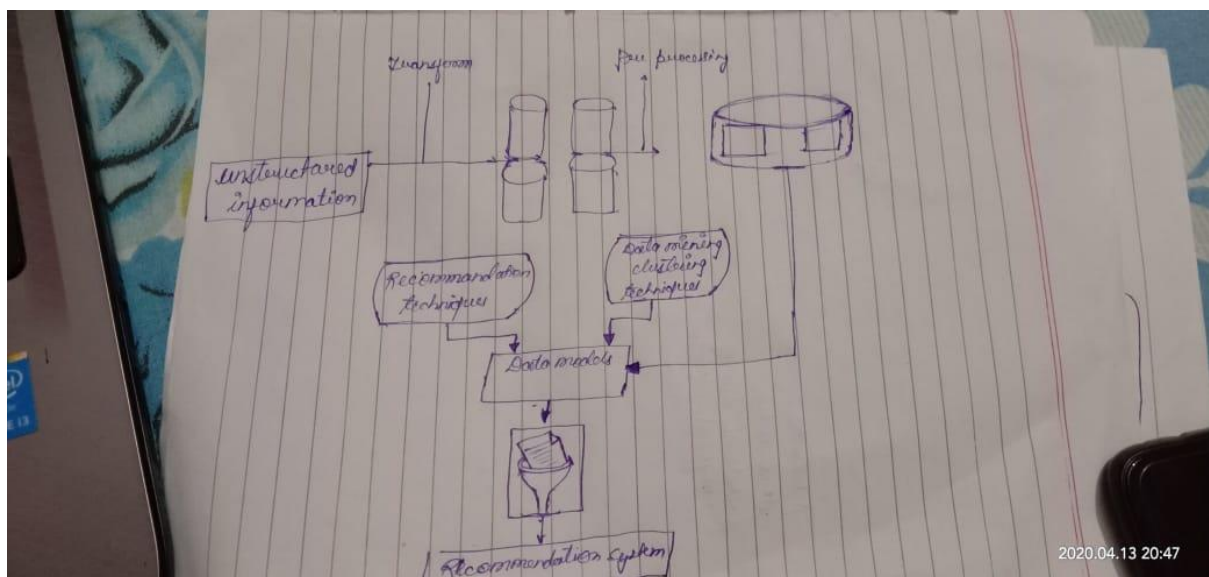 Transform
Pre processing
unstructured
information
Recommandation
techniques
Data mining
clustering
techniques
Data models
Recommendation system
2020.04.13 20:47